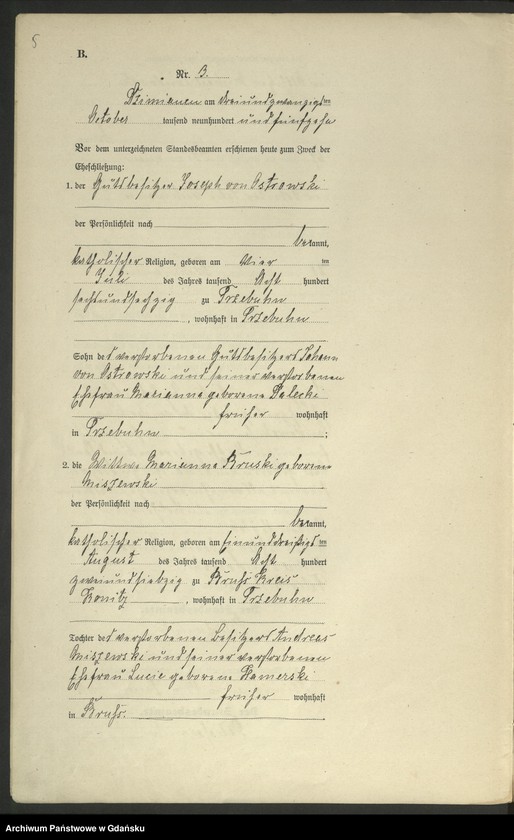 5
B.
Nr. 3.
Dzimianen am dreiundzwanzigsten
October tausend neunhundert und fünfzehn
Vor dem unterzeichneten Standesbeamten erschienen heute zum Zweck der
Eheschließung:
1. der Gutsbesitzer Joseph von Ostrowski
der Persönlichkeit nach
bekannt,
katholischer Religion, geboren am vier ten
Juli des Jahres tausend Acht hundert
sechsundsechzig zu Trzebuhn
, wohnhaft in Trzebuhn
Sohn des verstorbenen Gutsbesitzers Johann
von Ostrowski und seiner verstorbenen
Ehefrau Marianna geborene Dalecki
früher wohnhaft
in Trzebuhn ;
2. die Wittwe Marianna Kruski geborene
Miszewski
der Persönlichkeit nach
bekannt,
katholischer Religion, geboren am einunddreißigsten
August des Jahres tausend Acht hundert
zweiundsiebzig zu Bruhs Kreis
Konitz , wohnhaft in Trzebuhn
Tochter des verstorbenen Besitzers Andreas
Miszewski und seiner verstorbenen
Ehefrau Lucie geborene
früher wohnhaft
in Bruhs.
Archiwum Państwowe w Gdańsku